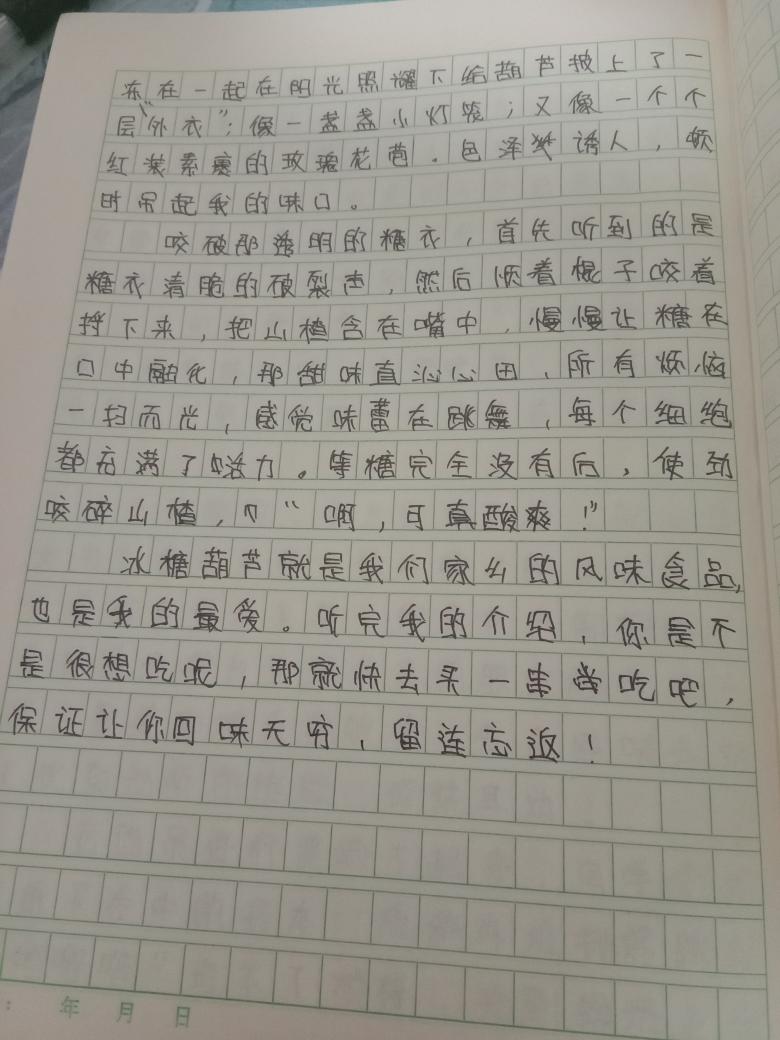 冻在一起在阳光照耀下给葫芦披上了一
层“外衣”；像一盏盏小灯笼；又像一个个
红装素裹的玫瑰花苞。色泽诱人，顿
时吊起我的味口。
咬破那透明的糖衣，首先听到的是
糖衣清脆的破裂声，然后顺着棍子咬着
挣下来，把山楂含在嘴中，慢慢让糖在
口中融化，那甜味直沁心田，所有烦恼
一扫而光，感觉味蕾在跳舞，每个细胞
都充满了活力。等糖完全没有后，使劲
咬碎山楂，“啊，可真酸爽！”
冰糖葫芦就是我们家乡的风味食品，
也是我的最爱。听完我的介绍，你是不
是很想吃呢，那就快去买一串尝吃吧，
保证让你回味无穷，留连忘返！
年 月 日